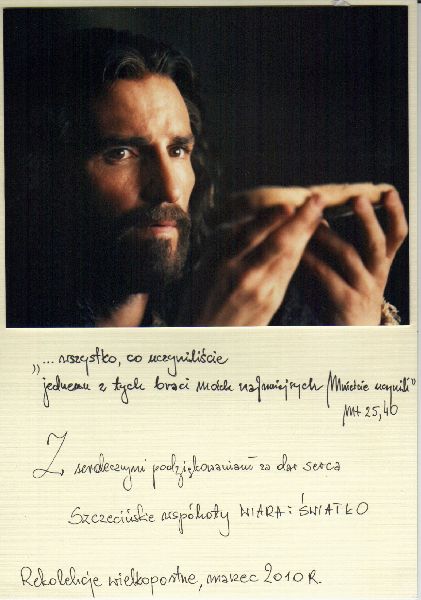 „... wszystko, co uczyniliście
jednemu z tych braci moich najmniejszych, Mnieście uczynili"
Mt 25,40
Z serdecznymi podziękowaniami za dar serca
Szczecińskie wspólnoty WIARA i ŚWIATŁO
Rekolekcje wielkopostne, marzec 2010 R.